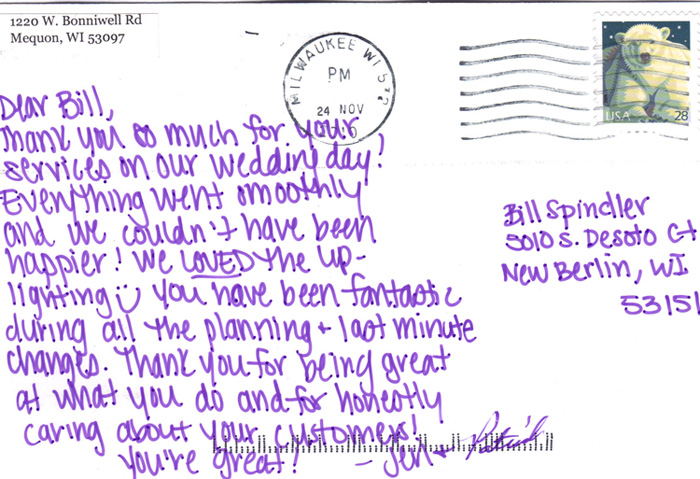 1220 W. Bonniwell Rd
Mequon, WI 53097
MILWAUKEE WI 532
PM
24 NOV
USA
28
Dear Bill,
Thank you so much for your
services on our wedding day!
Everything went smoothly
and we couldn't have been
happier! We LOVED the up-
lighting you have been fantastic
during all the planning + last minute
changes. Thank you for being great
at what you do and for honestly
caring about your customers!
You're great! - Jen + Patrick
Bill Spindler
5010 S. Desoto Ct
New Berlin, WI
53151